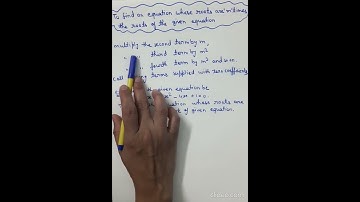 To find an equation whose roots are m times
the roots of the given equation
multiply the second term by m,
third term by m²
fourth term by m³ and so on.
Call terms supplied with zero coefficients
equation be
equation whose roots are
of given equation.